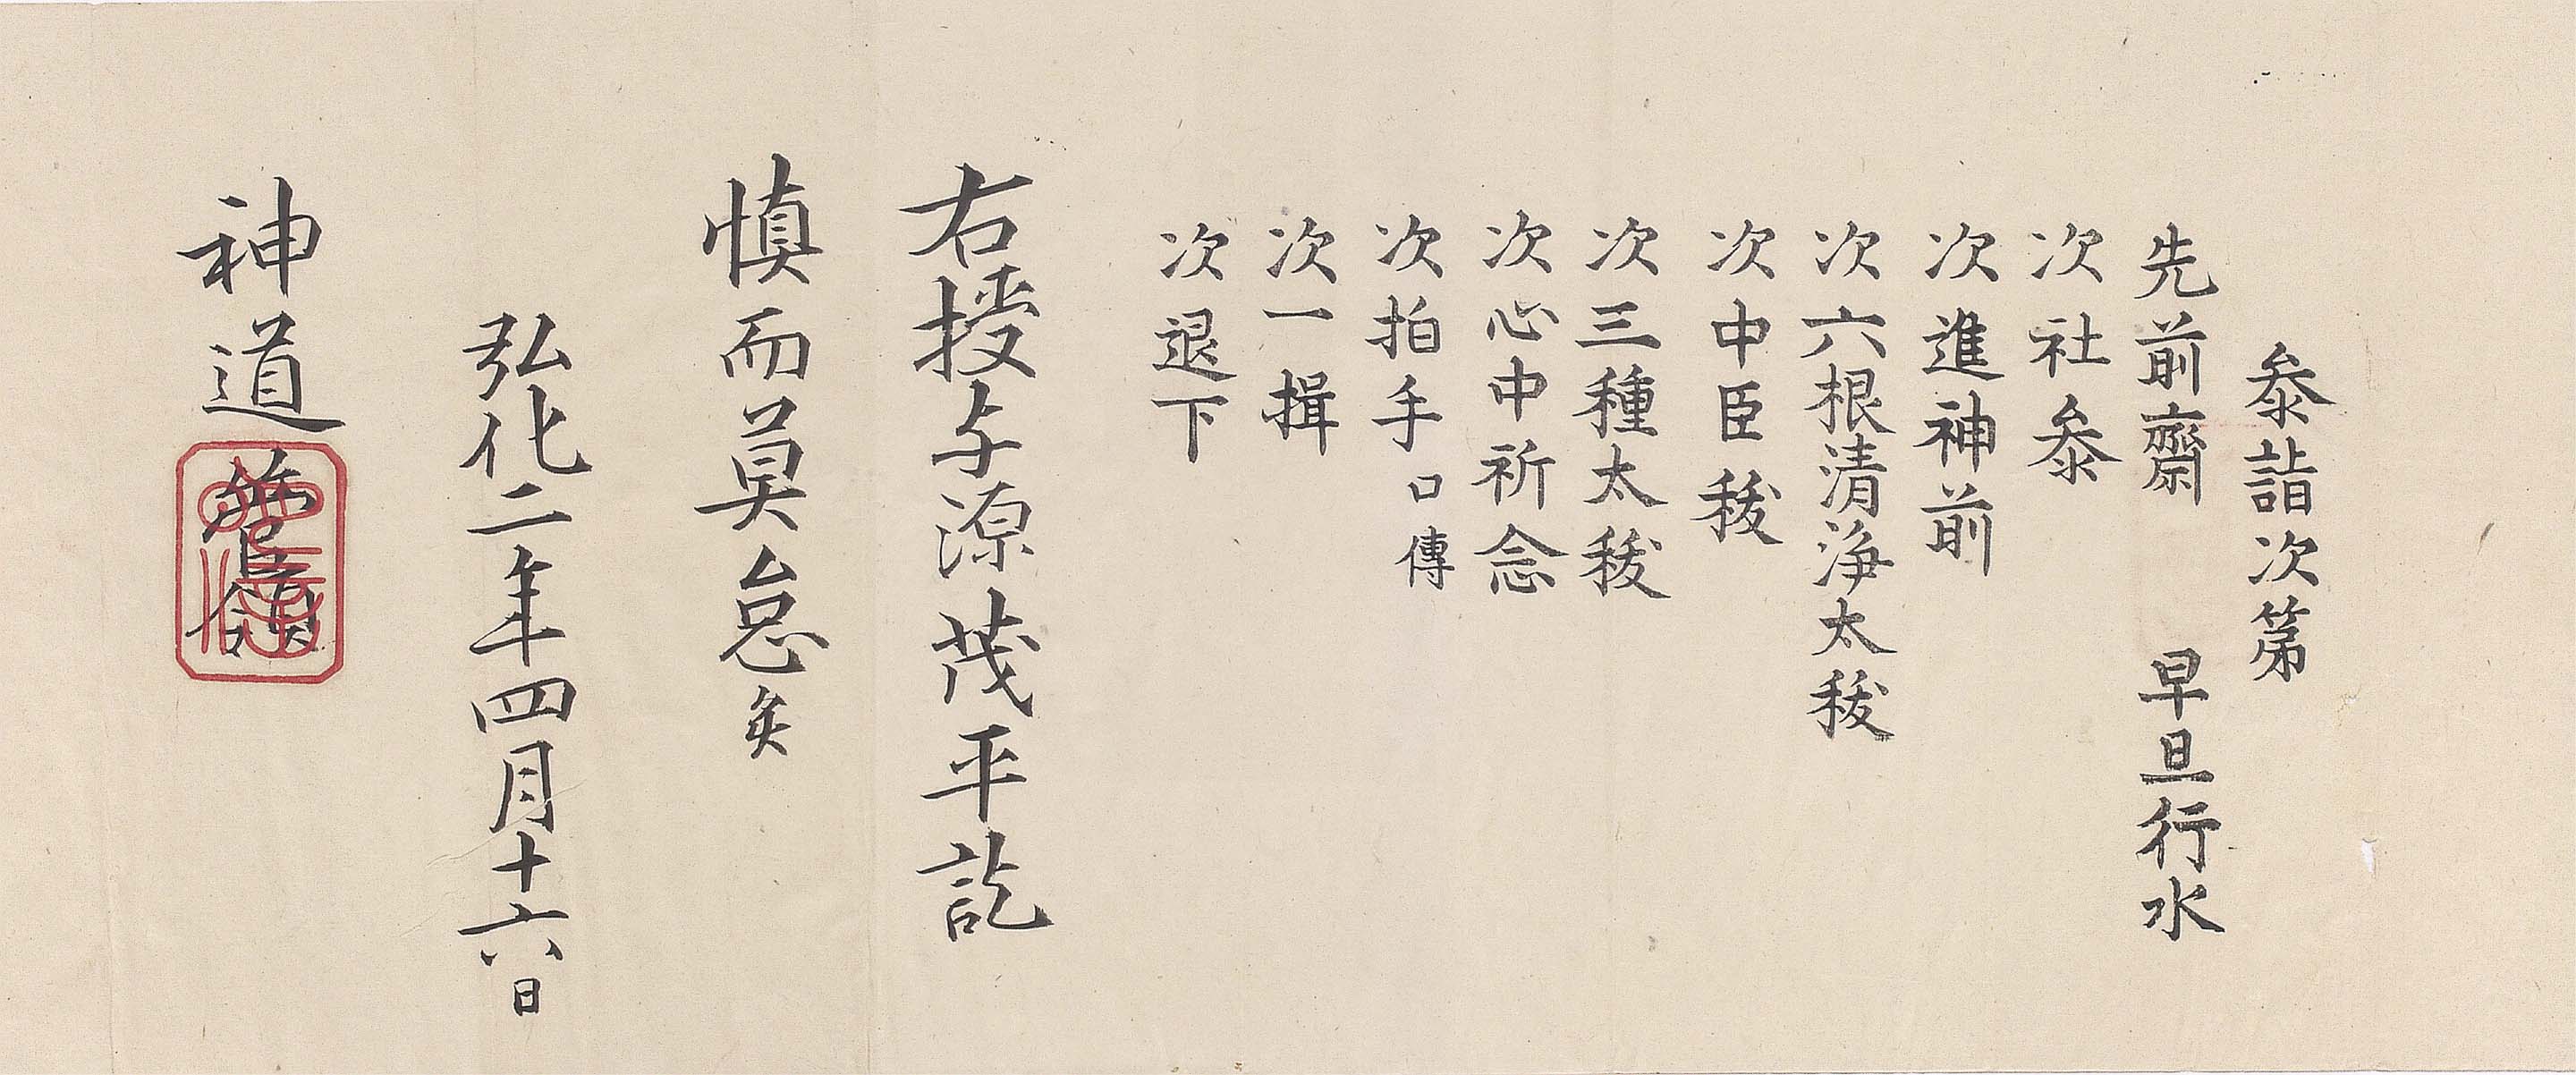 参詣次第
先前齋　早旦行水
次社参
次進神前
次六根清浄太秡
次中臣秡
次三種太秡
次心中祈念
次拍手口傳
次一揖
次退下
右授与源茂平訖
慎而莫怠矣
弘化二年四月十六日
神道管領